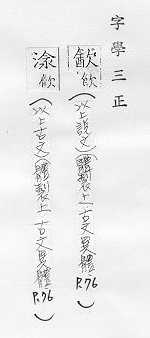 字學三正
飲(以上說文)(體製上一古文異體P.76)
飲(以上古文)(體製上一古文異體P.76)